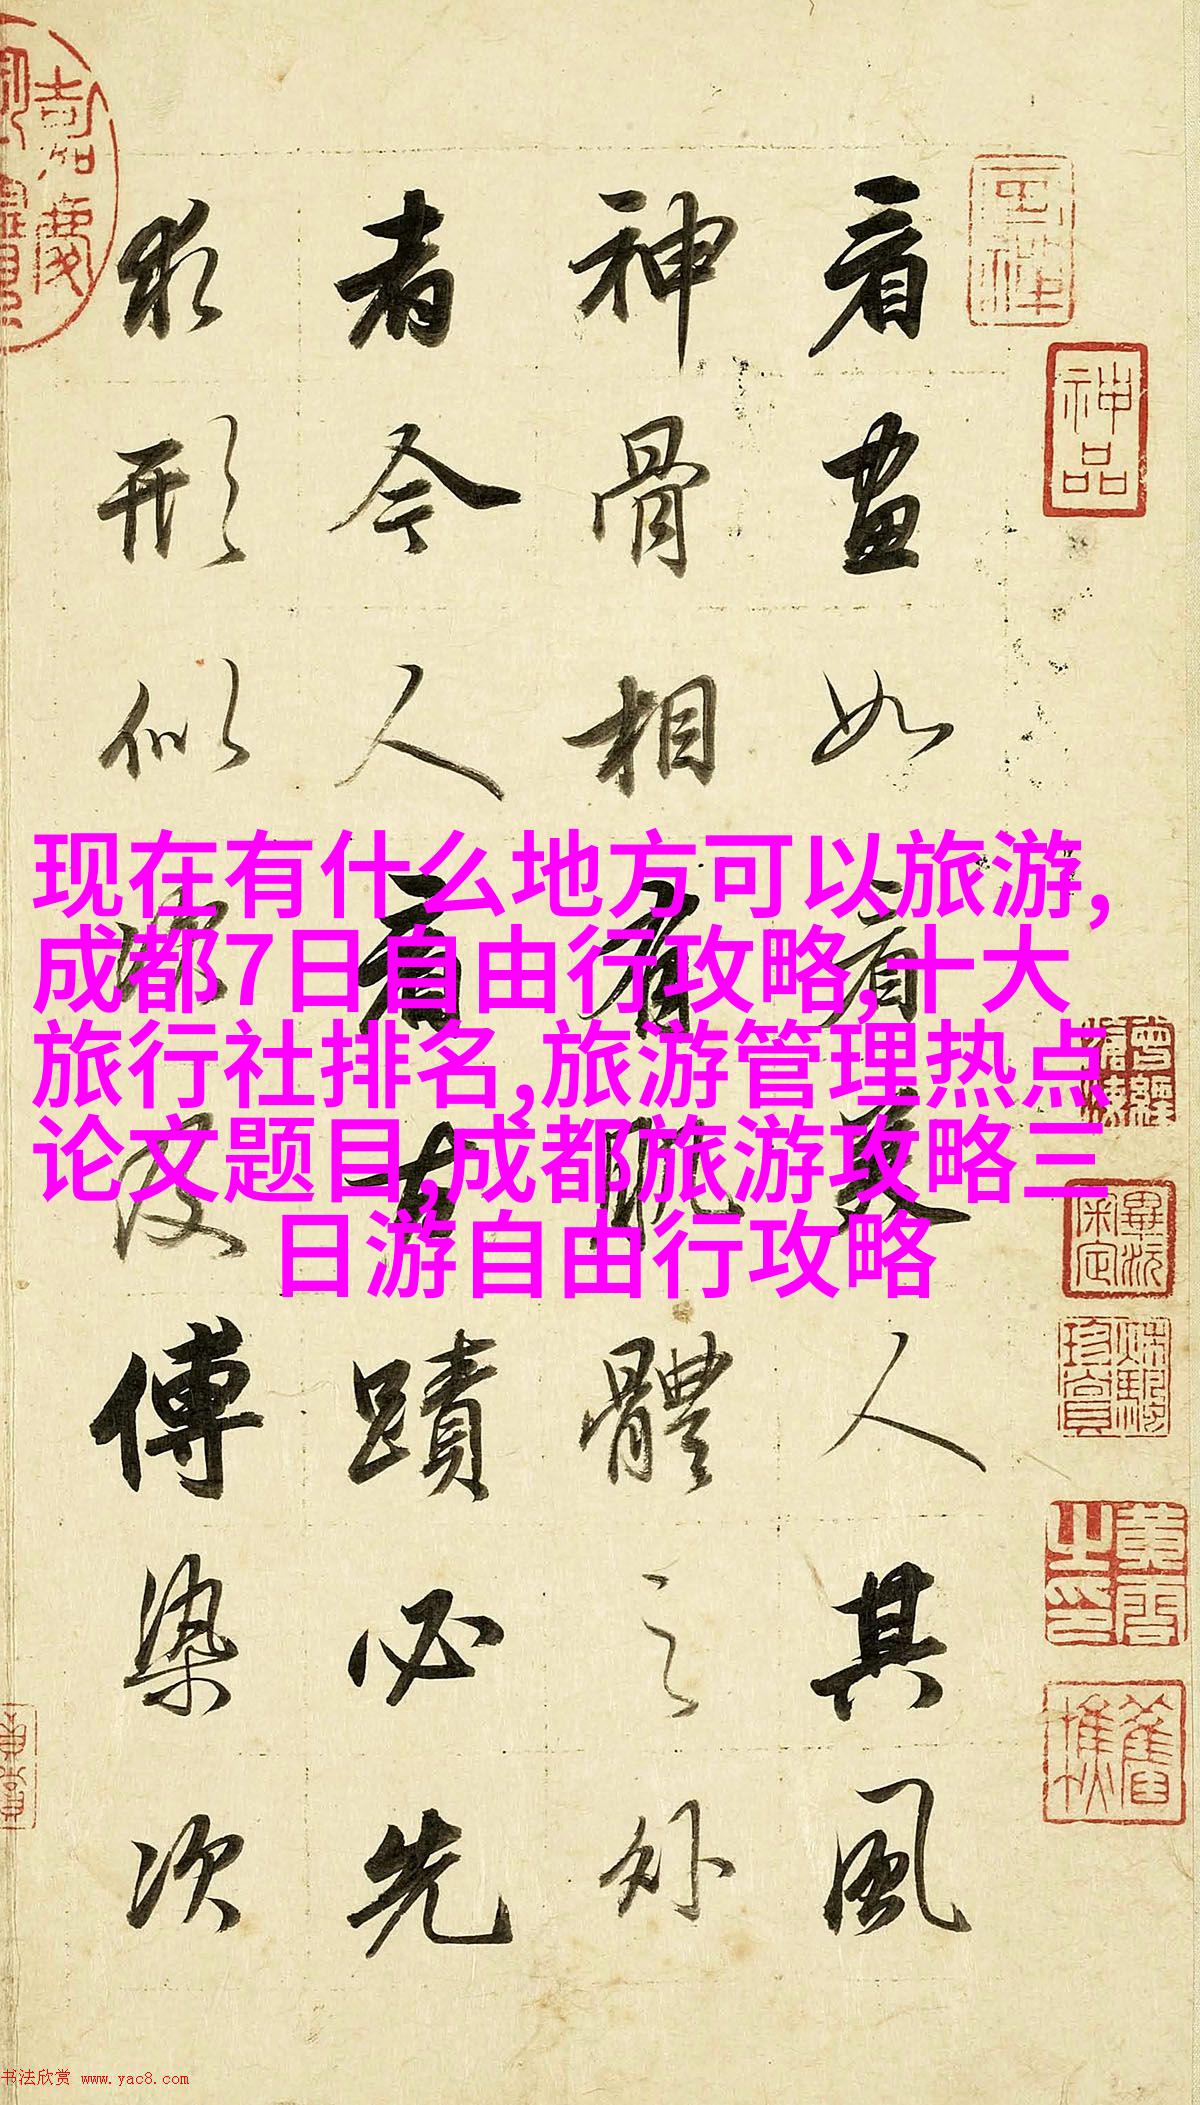 看畫如看美人其風
神骨相有肌體之外
者今人看古蹟必先
求形似次及傅染次
现在有什么地方可以旅游,
成都7日自由行攻略,十大
旅行社排名,旅游管理热点
论文题目,成都旅游攻略三
日游自由行攻略
神品
嘉慶
书法欣赏 www.yac8.com